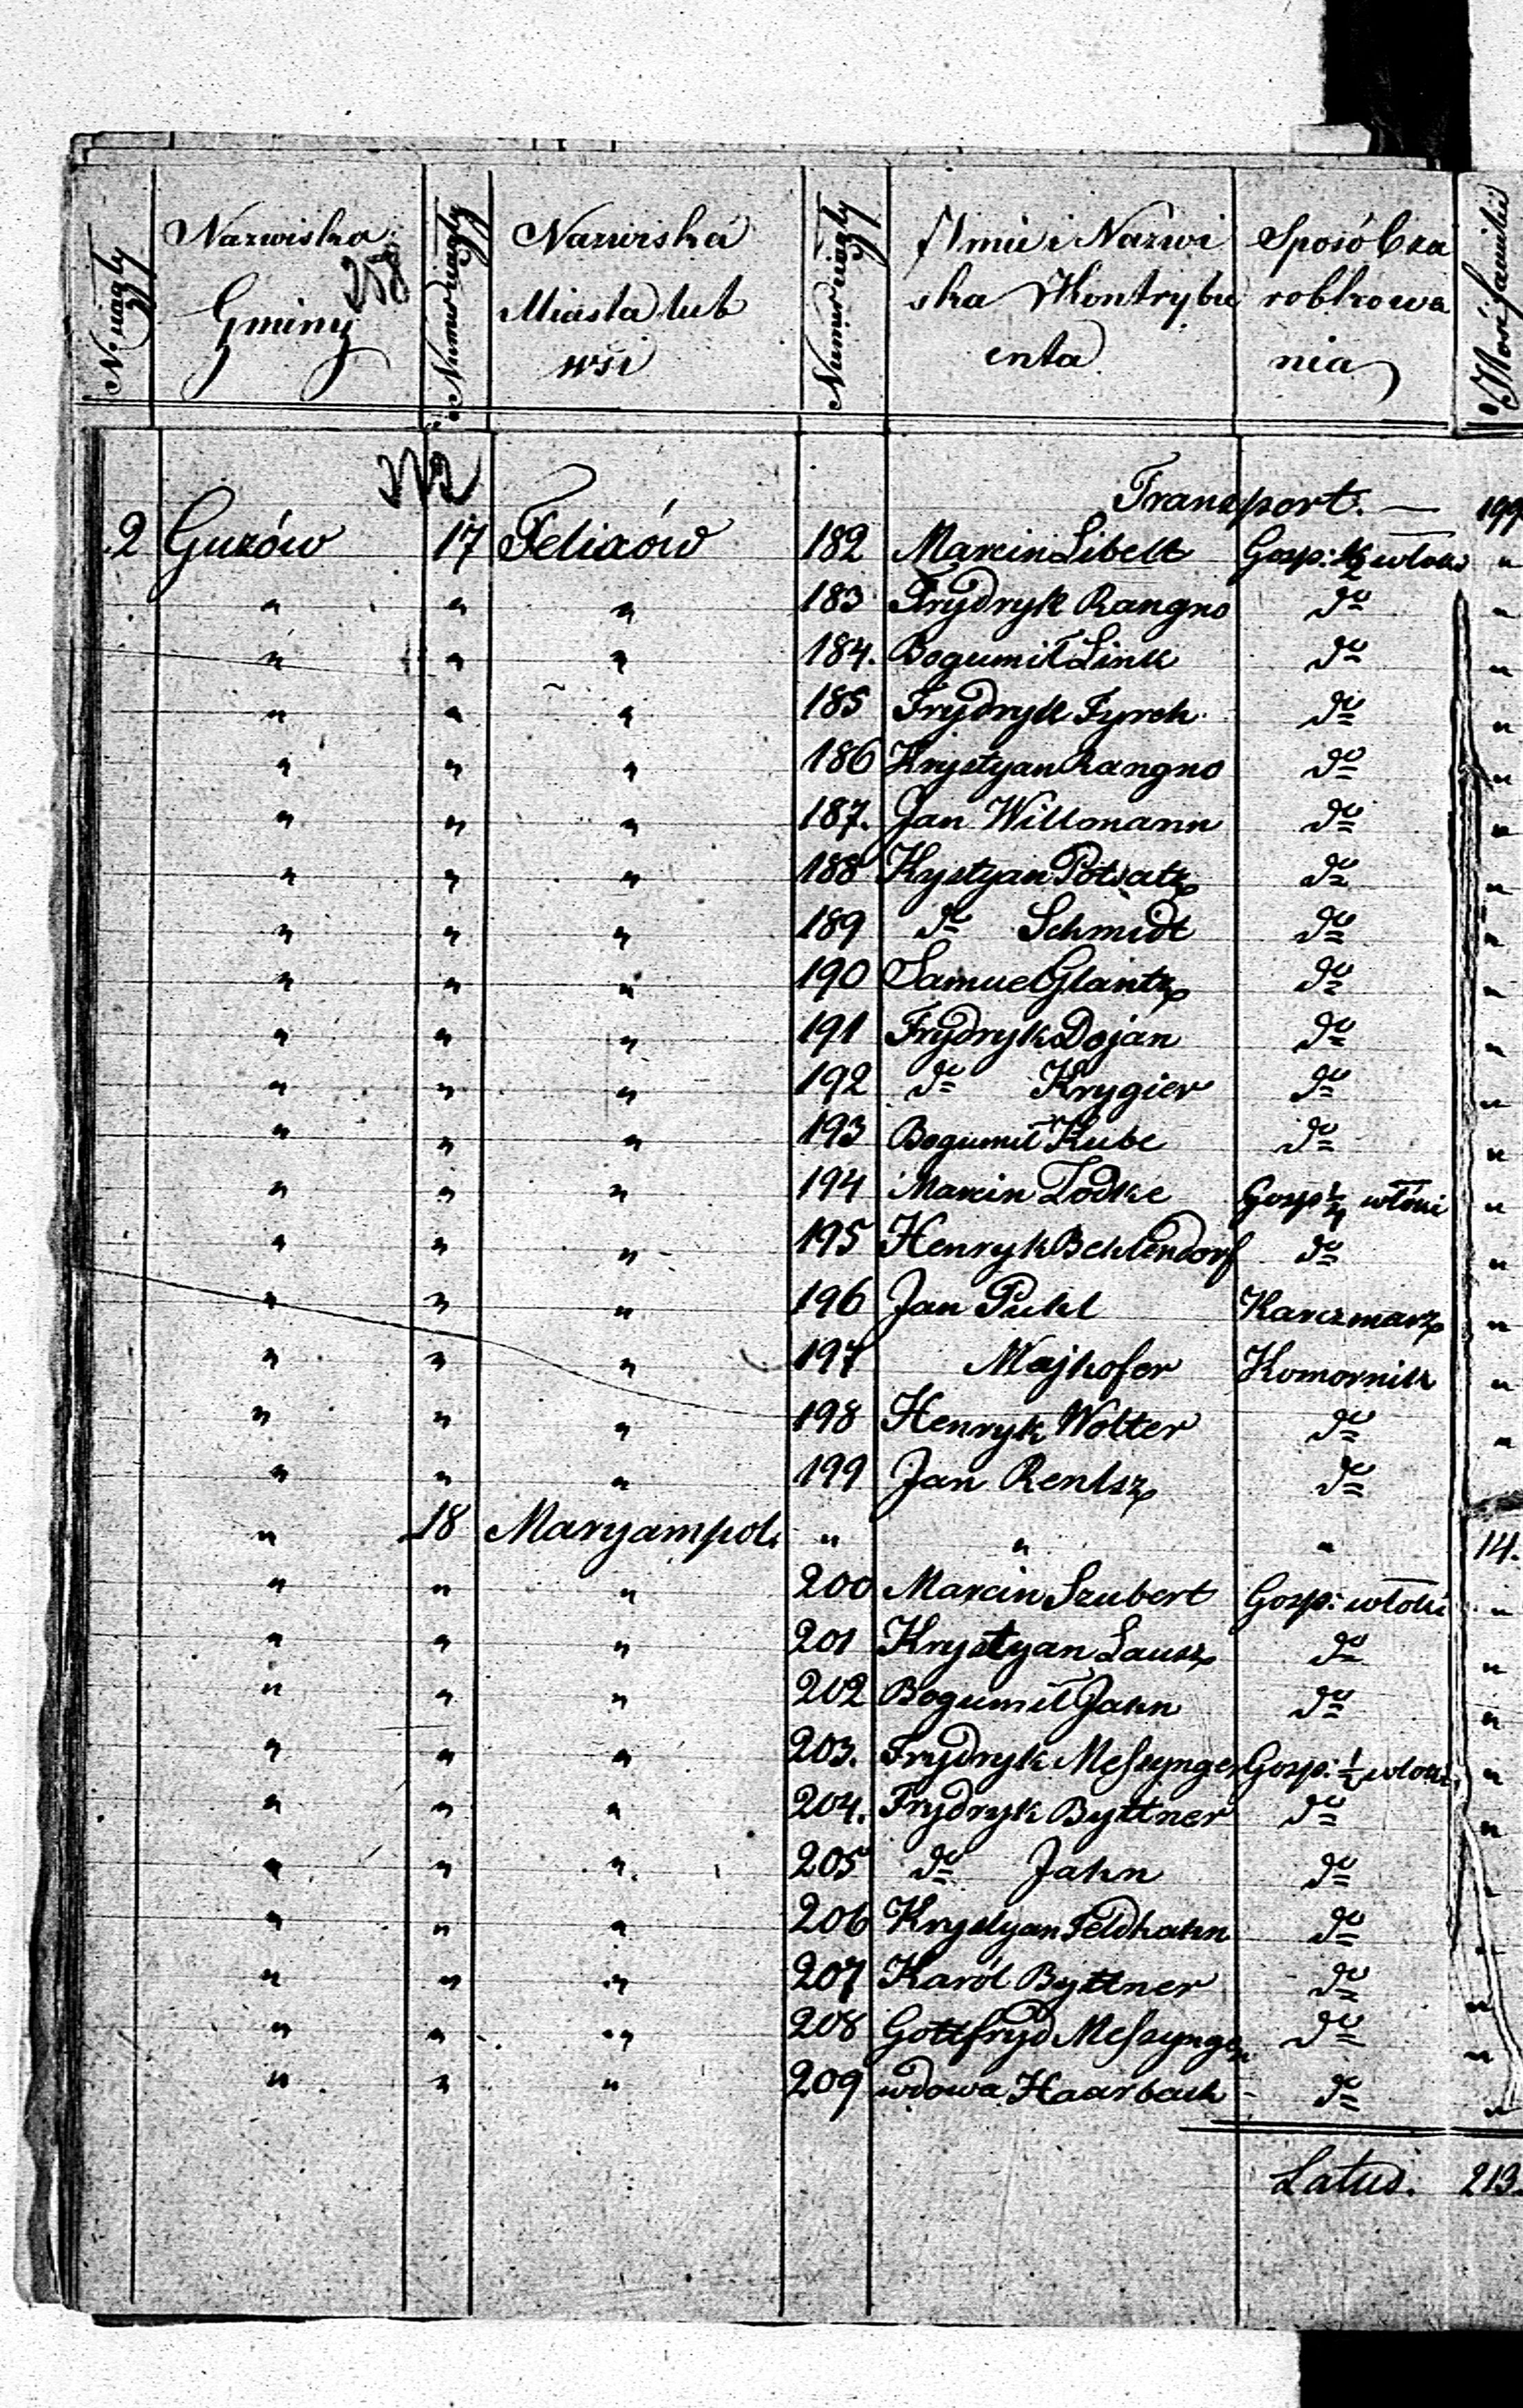 N. ciągły
Nazwiska
Gminy
258
Numer ciągły
Nazwiska
Miasta lub
wsi
Numer ciągły
Imie i Nazwi
ska Kontrybu
enta
Sposób za
robkowa
nia
Ilość familii
272
Transport. — 199
2 Guzów 17 Felixów 182 Marcin Libelt Gosp: ½ włoki "
" " " 183 Frydryk Rangno do "
" " " 184. Bogumił Link do "
" " " 185 Frydryk Fyrch do "
" " " 186 Krystyan Rangno do "
" " " 187. Jan Willmann do "
" " " 188 Kystyan do "
" " " 189 do Schmidt do "
" " " 190 Samuel Glantz do "
" " " 191 Frydryk Dojan do "
" " " 192 do Krygier do "
" " " 193 Bogumił Kube do "
" " " 194 Marcin Lodke Gosp ¼ włóki "
" " " 195 Henryk Behlendorf do "
" " " 196 Jan Pukl Karczmarz "
" " " 197 Majhofer Komornik "
" " " 198 Henryk Wolter do "
" " " 199 Jan Rentsz do
" 18 Maryampol. " " " 14.
" " " 200 Marcin Szubert Gosp: włóki "
" " " 201 Krystyan Lausz do "
" " " 202 Bogumił Jahn do "
" " " 203. Frydryk Messynger Gosp: ½ włoki "
" " " 204. Frydryk Byttner do "
" " " 205 do Jahn do "
" " " 206 Krystyan Feldhahn do "
" " " 207 Karól Byttner do "
" " " 208 Gottfryd Messynger do "
" " " 209 wdowa Haarbach do "
Latus. 213.